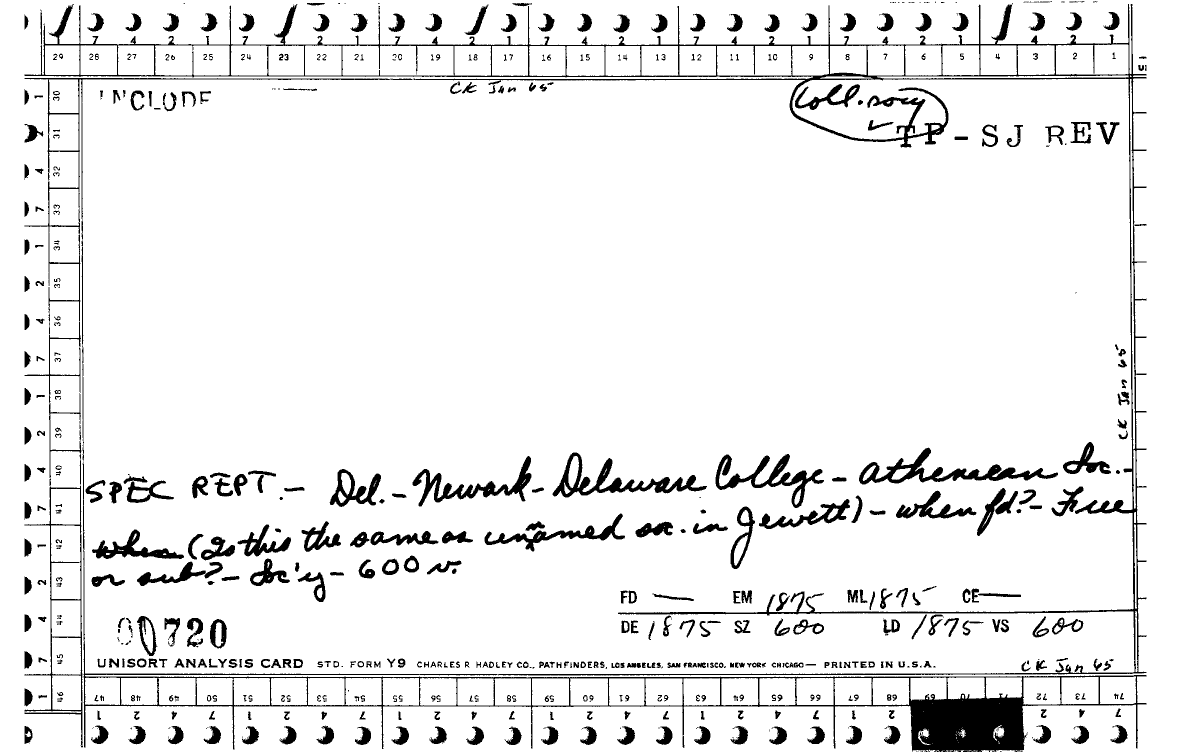 7 4 2 1 7 4 2 1 7 4 2 1 7 4 2 1 7 4 2 1 7 4 2 1 7 4 2 1
29 28 27 26 25 24 23 22 21 20 19 18 17 16 15 14 13 12 11 10 9 8 7 6 5 4 3 2 1
INCLUDE
CK Jan 65
Coll. socy
TP-SJ REV
1 30
2 31
4 32
7 33
1 34
2 35
4 36
7 37
1 38
2 39
4 40
7 41
1 42
2 43
4 44
7 45
1 46
CK Jan 65
SPEC REPT.- Del.- Newark- Delaware College- Athenaean Soc.-
When (Is this the same as unnamed soc. in Jewett)- when fd?- Free
or sub?- Soc'y- 600 v.
FD — EM 1875 ML 1875 CE —
DE 1875 SZ 600 LD 1875 VS 600
00720
UNISORT ANALYSIS CARD STD. FORM Y9 CHARLES R. HADLEY CO., PATHFINDERS, LOS ANGELES, SAN FRANCISCO, NEW YORK CHICAGO— PRINTED IN U.S.A.
CK Jan 65
47 48 49 50 51 52 53 54 55 56 57 58 59 60 61 62 63 64 65 66 67 68 69 70 71 72 73 74
1 2 4 7 1 2 4 7 1 2 4 7 1 2 4 7 1 2 4 7 1 2 4 7